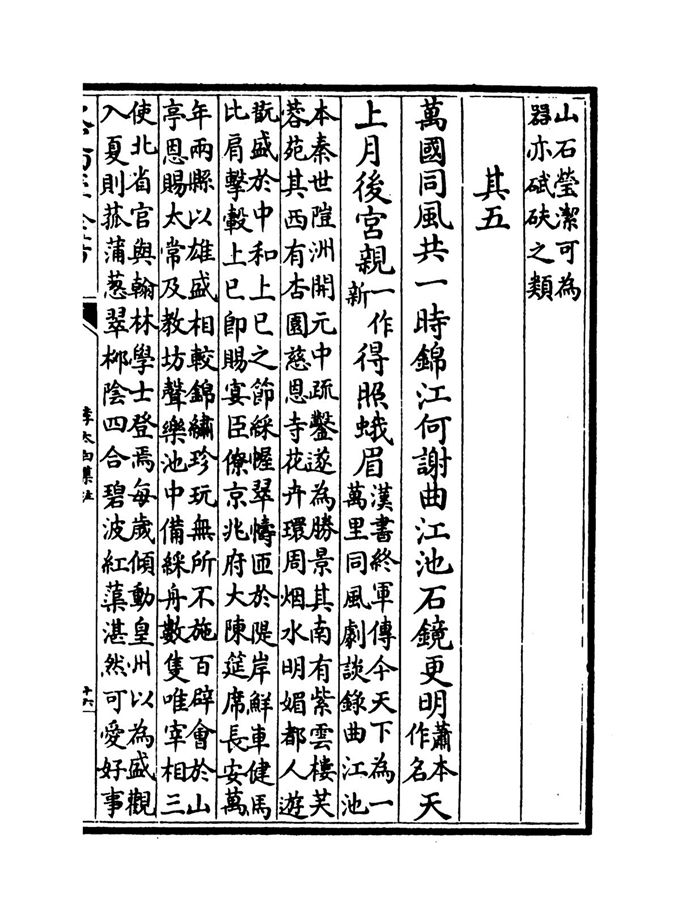 山石瑩潔可為
器亦碔砆之類
其五
萬國同風共一時錦江何謝曲江池石鏡更明蕭本作名天
上月後宮親一作新得照蛾眉漢書終軍傳今天下為一
萬里同風劇談錄曲江池
本秦世隑洲開元中疏鑿遂為勝景其南有紫雲樓芙
蓉苑其西有杏園慈恩寺花卉環周烟水明媚都人遊
翫盛於中和上巳之節綵幄翠幬匝於隄岸鮮車健馬
比肩擊轂上巳即賜宴臣僚京兆府大陳筵席長安萬
年兩縣以雄盛相較錦繡珍玩無所不施百辟會於山
亭恩賜太常及教坊聲樂池中備綵舟數隻唯宰相三
使北省官與翰林學士登焉每歲傾動皇州以為盛觀
入夏則菰蒲葱翠栁陰四合碧波紅蕖湛然可愛好事
李太白集注
十六